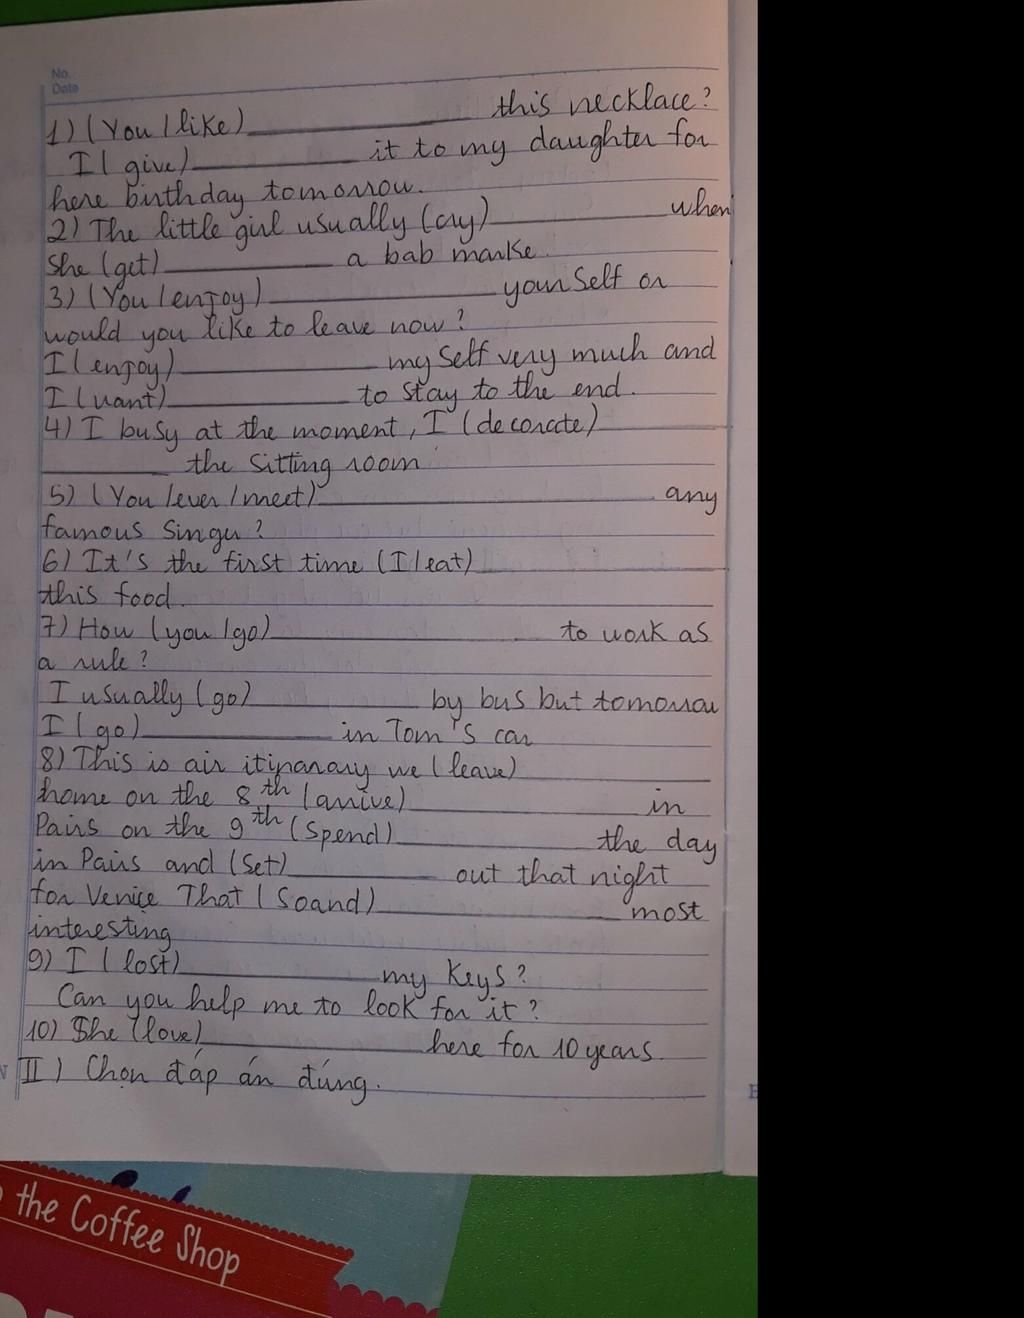 No.
Date
1) (You / like)____________ this necklace?
I ( give)____________ it to my daughter for
here birthday tomorrow.
2) The little girl usually (cry)____________ when
She (get)____________ a bab marke.
3) (You / enjoy)____________ yourSelf or
would you like to leave now?
I (enjoy)____________ mySelf very much and
I (vant)____________ to stay to the end.
4) I busy at the moment, I (decorate)____________
____________ the Sitting room
5) (You /ever /meet)____________ any
famous Singu?
6) It's the first time (I/eat)____________
this food.
7) How (you /go)____________ to work as
a rule?
I usually (go)____________ by bus but tomorrow
I (go)____________ in Tom's car
8) This is air itinarary we (leave)____________
home on the 8th (arrive)____________ in
Pairs on the 9th (Spend)____________ the day
in Pairs and (Set)____________ out that night
for Venice That (Soand)____________ most
interesting
9) I ( lost)____________ my Keys?
Can you help me to look for it?
10) She (love)____________ here for 10 years.
II) Chọn đáp án đúng.
the Coffee Shop